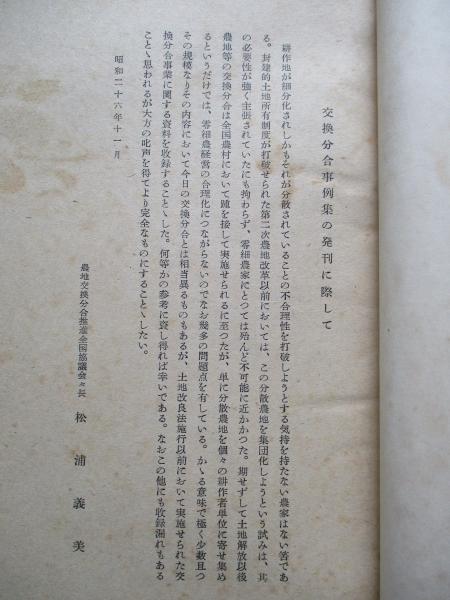 交換分合事例集の発刊に際して
耕作地が細分化されしかもそれが分散されていることの不合理性を打破しようとする気持を持たない農家はない筈であ
る。封建的土地所有制度が打破せられた第二次農地改革以前においては、この分散農地を集団化しようという試みは、其
の必要性が強く主張されていたにも拘わらず、零細農家にとつては殆んど不可能に近かかつた。期せずして土地解放以後
農地等の交換分合は全国農村において踵を接して実施せられるに至つたが、単に分散農地を個々の耕作者単位に寄せ集め
るというだけでは、零細農経営の合理化につながらないのでなお幾多の問題点を有している。かゝる意味で極く少数且つ
その規模なりその内容において今日の交換分合とは相当異るものもあるが、土地改良法施行以前において実施せられた交
換分合事業に関する資料を収録することゝした。何等かの参考に資し得れば幸いである。なおこの他にも収録漏れもある
ことゝ思われるが大方の叱声を得てより完全なものにすることゝしたい。
昭和二十六年十一月
農地交換分合推進全国協議会々長 松浦義美